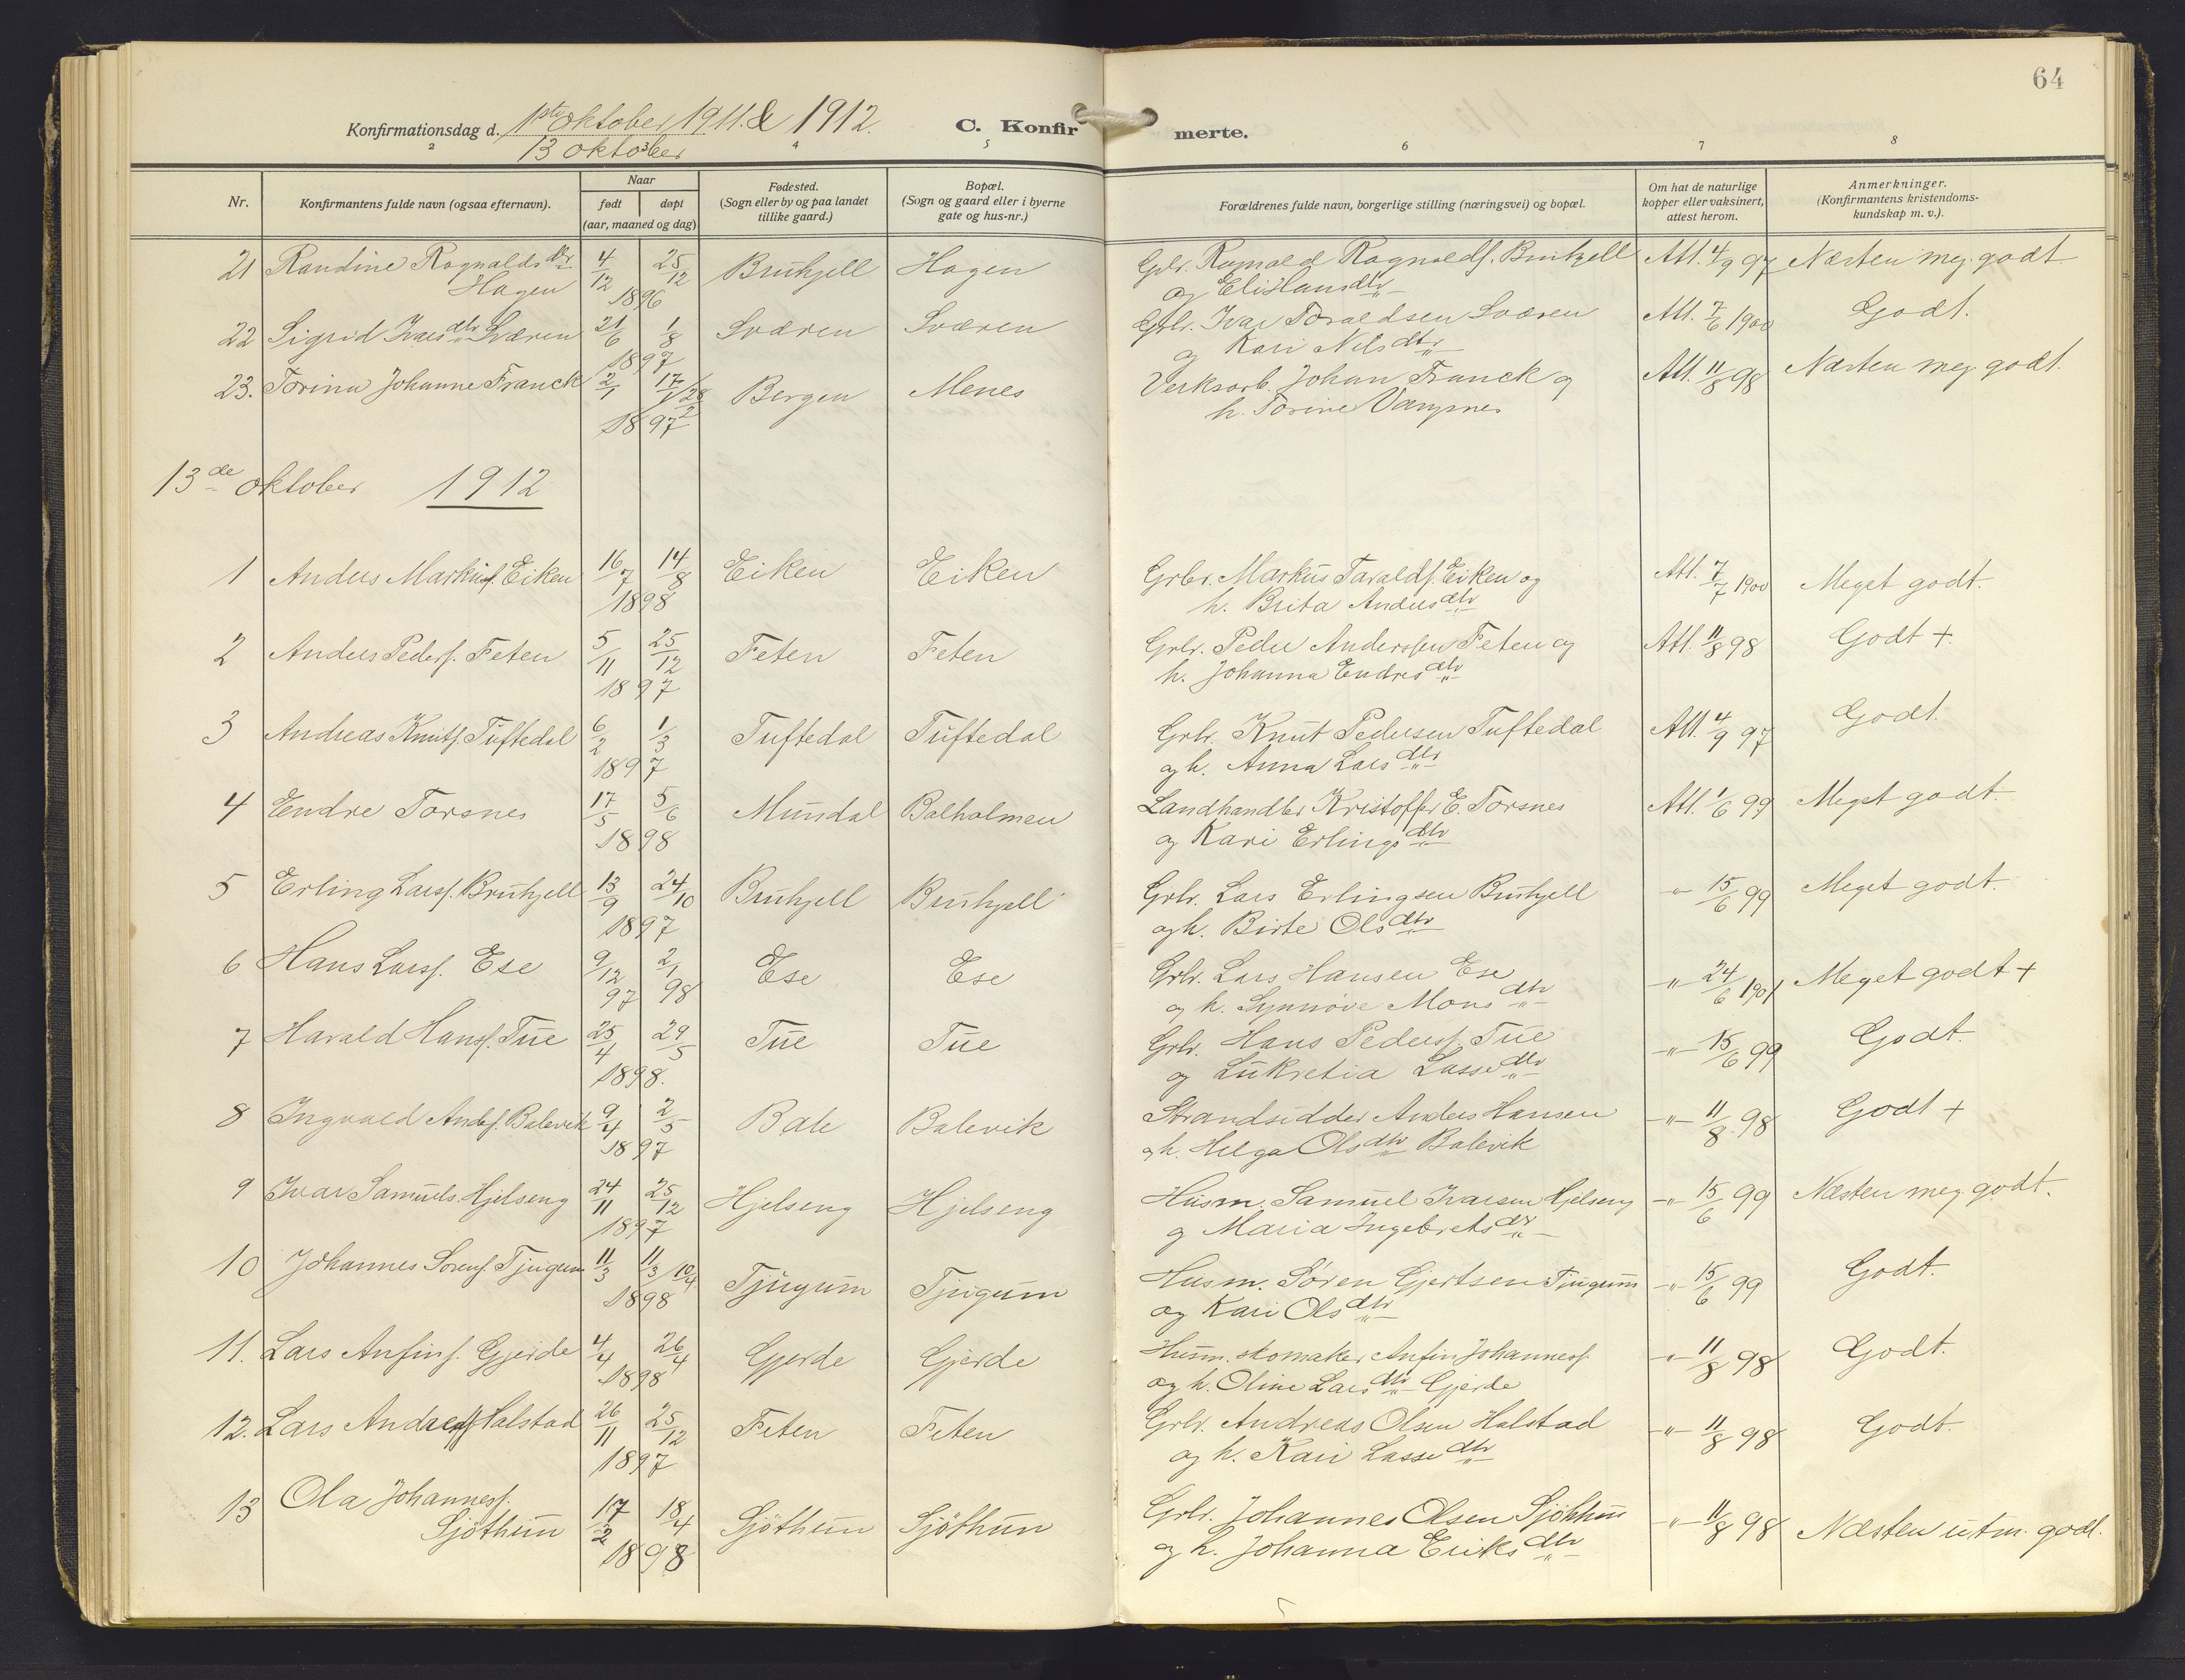 64
Konfirmationsdag d. 1ste oktober 1911. & 1912. C. Konfirmerte.
13 oktober
2 3 4 5 6 7 8
Nr. Konfirmantens fulde navn (ogsaa efternavn). Naar født døpt (aar, maaned og dag) Fødested. (Sogn eller by og paa landet tillike gaard.) Bopæl. (Sogn og gaard eller i byerne gate og hus-nr.) Forældrenes fulde navn, borgerlige stilling (næringsvei) og bopæl. Om hat de naturlige kopper eller vaksinert, attest herom. Anmerkninger. (Konfirmantens kristendoms-kundskap m. v.).
21 Randine Ragnalds dtr 4/12 25/12 Bruhjell Hagen Grbr. Ragnald Ragnalds. Bruhjell Att. 4/9 97 Næsten meg. godt
Hagen 1896 og Eli Hans dtr
22 Sigrid Ivars dtr Sværen 21/6 1/8 Sværen Sværen Grbr. Ivar Taraldsen Sværen Att. 7/6 1900 Godt.
1897 og Kari Nils dtr
23. Torina Johanne Franck 2/1 17/1 28/2 Bergen Menes Verksarb. Johan Franck og Att. 11/8 98 Næsten meg. godt.
1897 h. Torine Vangsnes
13de oktober 1912
1 Anders Markuss. Eiken 16/7 14/8 Eiken Eiken Grbr. Markus Taralds. Eiken og Att. 7/7 1900 Meget godt.
1898 h. Brita Anders dtr
2 Anders Peders. Feten 5/11 25/12 Feten Feten Grbr. Peder Anderssen Feten og Att. 11/8 98 Godt +
1897 h. Johanna Endres dtr
3 Andreas Knuts. Tuftedal 6/2 1/3 Tuftedal Tuftedal Grbr. Knut Pedersen Tuftedal Att. 4/9 97 Godt.
1897 og h. Anna Lars dtr
4 Endre Torsnes 17/5 5/6 Mundal Balholmen Landhandler Kristoffer E. Torsnes Att. 1/6 99 Meget godt.
1898 og Kari Erlings dtr
5 Erling Larss. Bruhjell 13/9 24/10 Bruhjell Bruhjell Grbr. Lars Erlingsen Bruhjell -"- 15/6 99 Meget godt.
1897 og h. Birte Ols dtr
6 Hans Larss. Ese 9/12 97 2/1 98 Ese Ese Grbr. Lars Hansen Ese -"- 24/6 1901 Meget godt +
og h. Synnöve Mons dtr
7 Harald Hanss. Tue 25/4 29/5 Tue Tue Grbr. Hans Pederss. Tue -"- 15/6 99 Godt.
1898. og Lukretia Lasse dtr
8 Ingvald Anders. Balevik 9/4 2/5 Bale Balevik Strandsidder Anders Hansen -"- 11/8 98 Godt +
1897 og h. Helga Ols dtr Balevik
9 Ivar Samuels. Hjelseng 24/11 25/12 Hjelseng Hjelseng Husm. Samuel Ivarsen Hjelseng -"- 15/6 99 Næsten meg. godt.
1897 og Maria Ingebrets dtr
10 Johannes Sørens. Tjugum 11/3 11/3 10/4 Tjugum Tjugum Husm. Søren Gjertsen Tjugum -"- 15/6 99 Godt.
1898 og Kari Ols dtr
11. Lars Anfins. Gjerde 4/4 26/4 Gjerde Gjerde Husm. skomaker Anfin Johanness. -"- 11/8 98 Godt.
1898 og h. Oline Lars dtr Gjerde
12. Lars Andreass. Halstad 26/11 25/12 Feten Feten Grbr. Andreas Olsen Halstad -"- 11/8 98 Godt.
1897 og h. Kari Lasse dtr
13 Ola Johanness. 17/2 18/4 Sjöthun Sjöthun Grbr. Johannes Olsen Sjöthun -"- 11/8 98 Næsten utm. godt.
Sjöthun 1898 og h. Johanna Eriks dtr